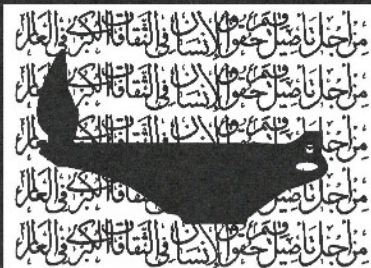 من أجل تأصيل حقوق الإنسان في الثقافات الكبرى في العالم
من أجل تأصيل حقوق الإنسان في الثقافات الكبرى في العالم
من أجل تأصيل حقوق الإنسان في الثقافات الكبرى في العالم
من أجل تأصيل حقوق الإنسان في الثقافات الكبرى في العالم
من أجل تأصيل حقوق الإنسان في الثقافات الكبرى في العالم